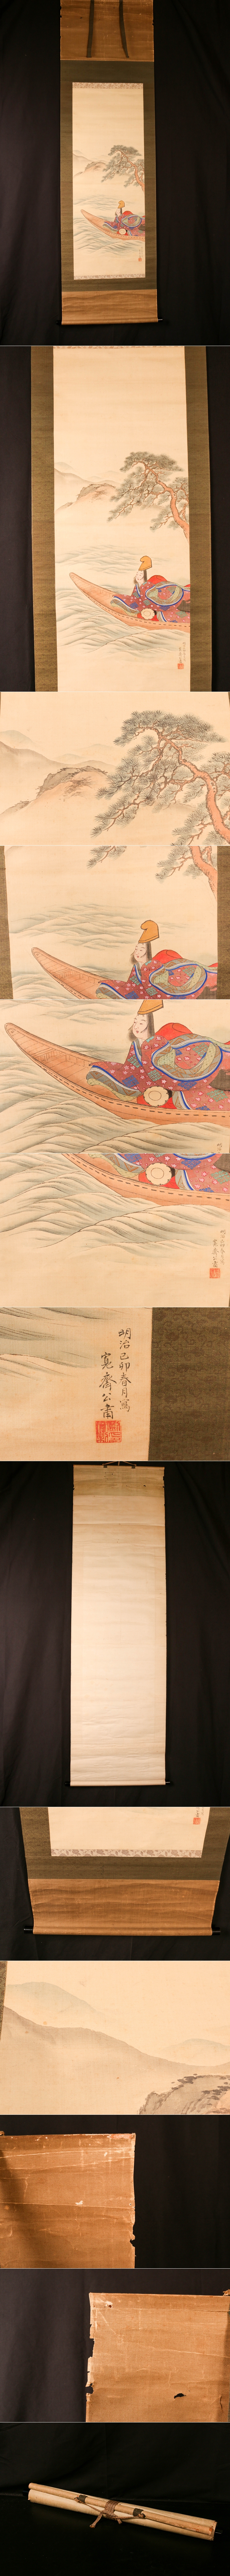 明治己卯春月寫
寛齋公肅